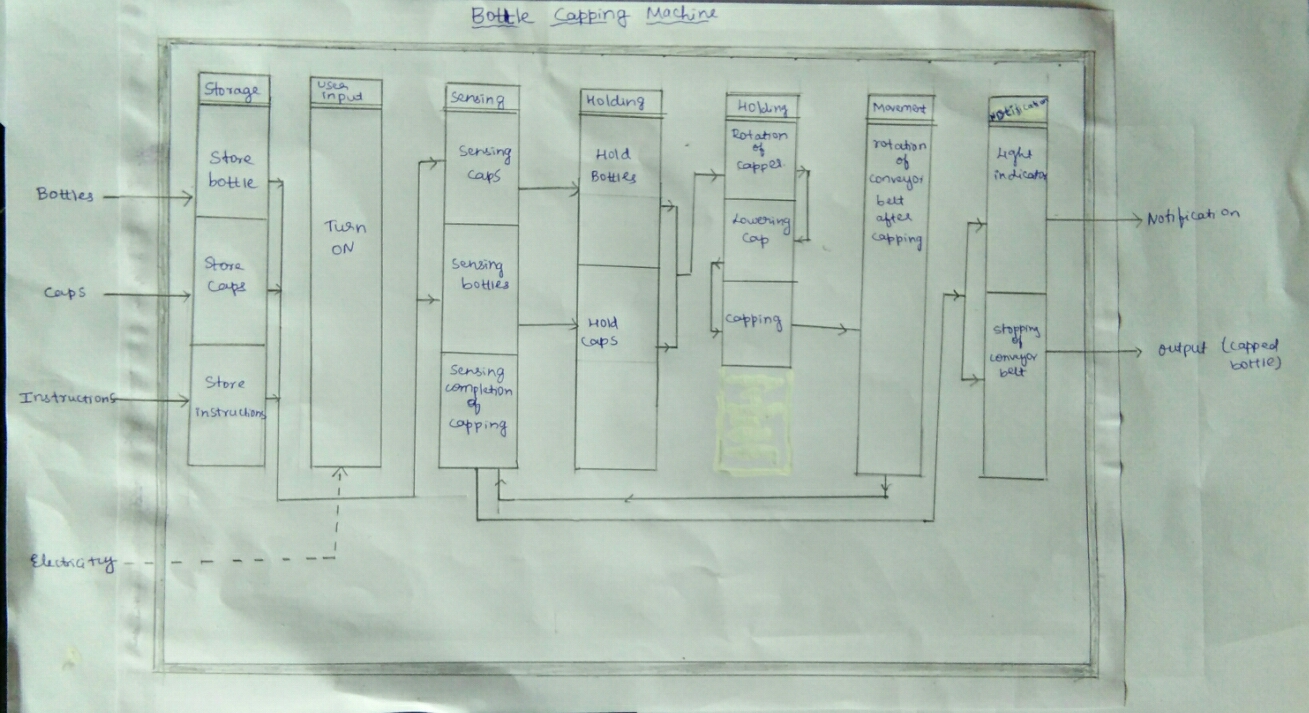 Bottle Capping Machine
Storage
Store
bottle
Store
Caps
Store
instructions
User
input
Turn
ON
Sensing
Sensing
caps
Sensing
bottles
Sensing
completion
of
capping
Holding
Hold
Bottles
Hold
caps
Holding
Rotation
of
capper
Lowering
Cap
Capping
Movement
rotation
of
conveyor
belt
after
capping
Notification
Light
indicator
Stopping
of
conveyor
belt
Bottles
Caps
Instructions
Electricity
Notification
output (capped
bottle)